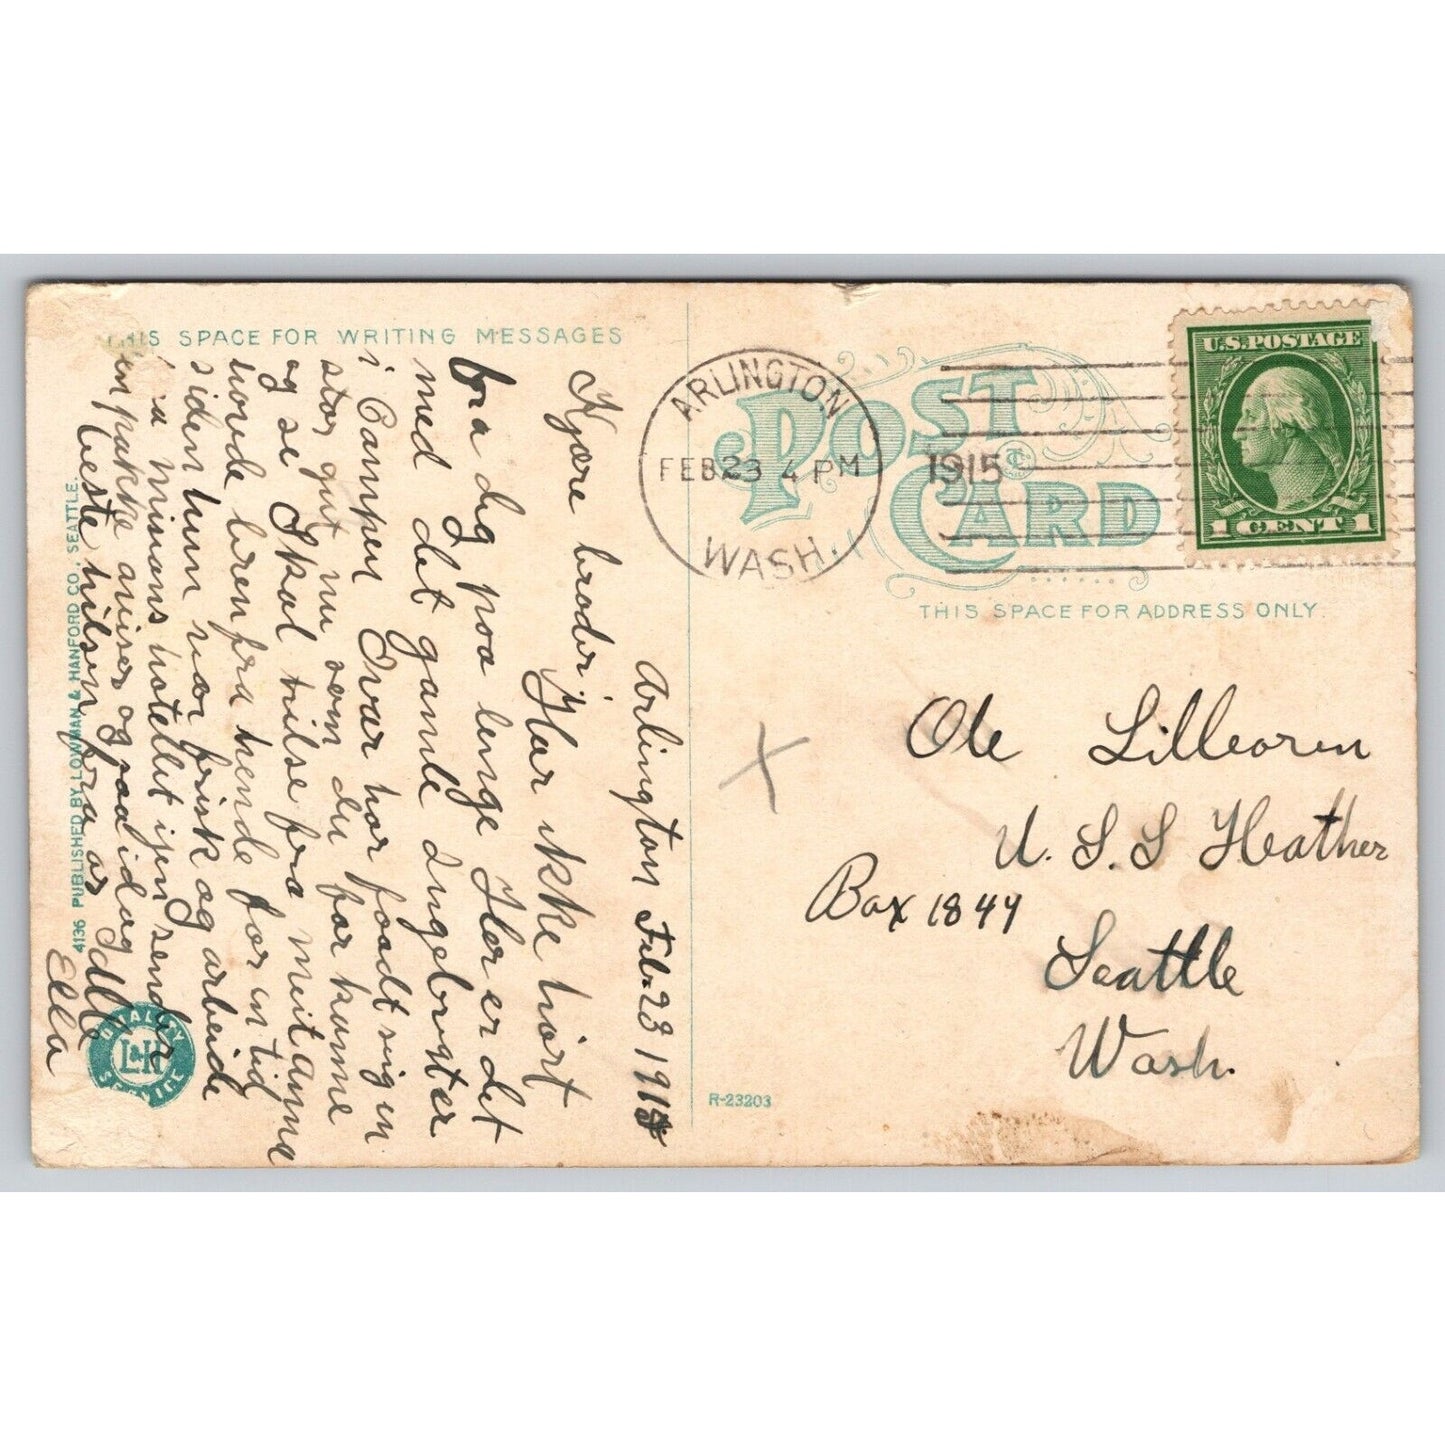 THIS SPACE FOR WRITING MESSAGES
Arlington Feb. 23 1915
Kjære broder!
Har ikke hört
fra dig paa lenge Her er det
med det gamle Ingebregter
i Camper Ivar har faadt sig en
stor gut nu som du faar komme
og se Skal hilse fra mit Anna
hvorde bren fra hende for en tid
siden hun var frisk og arbeide
fra misions hotellet ijen sender
en pakke aviser og saa idag
beste hilsen fra os alle
Ella
4136 PUBLISHED BY LOWMAN & HANFORD CO., SEATTLE.
QUALITY
L&H
SERVICE
ARLINGTON
FEB 23 4 PM
WASH.
1915
POST CARD
U.S. POSTAGE
1 CENT 1
THIS SPACE FOR ADDRESS ONLY.
Ole Lilleoren
U.S.S Heather
Box 1844
Seattle
Wash.
R-23203